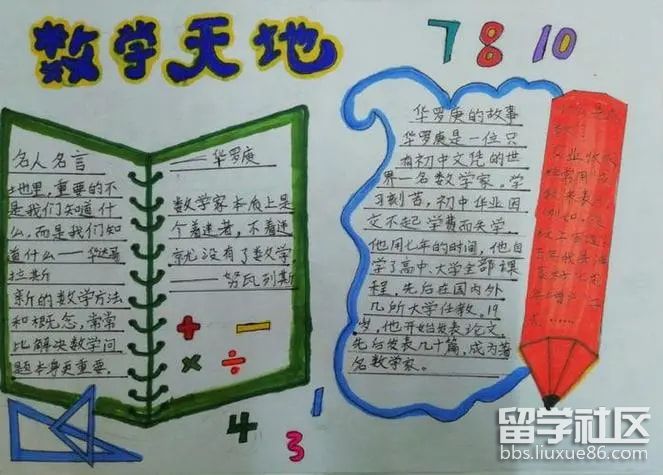 数学天地
7 8 10
名人名言
地里,重要的不
是我们知道什
么,而是我们知
道什么——毕达哥
拉斯
新的数学方法
和概念,常常
比解决数学问
题本身更重要.
——华罗庚
数学家本质上是
个着迷者,不着迷
就没有了数学.
——努瓦列斯
+ −
× ÷
4 3 1
华罗庚的故事
华罗庚是一位只
有初中文凭的世
界一名数学家。学
习刻苦,初中毕业因
交不起学费而失学
他用七年的时间,他自
学了高中、大学全部课
程,先后在国内外
几所大学任教,19
岁,他开始发表论文,
先后发表几十篇,成为著
名数学家。
留学社区
bbs.liuxue86.com